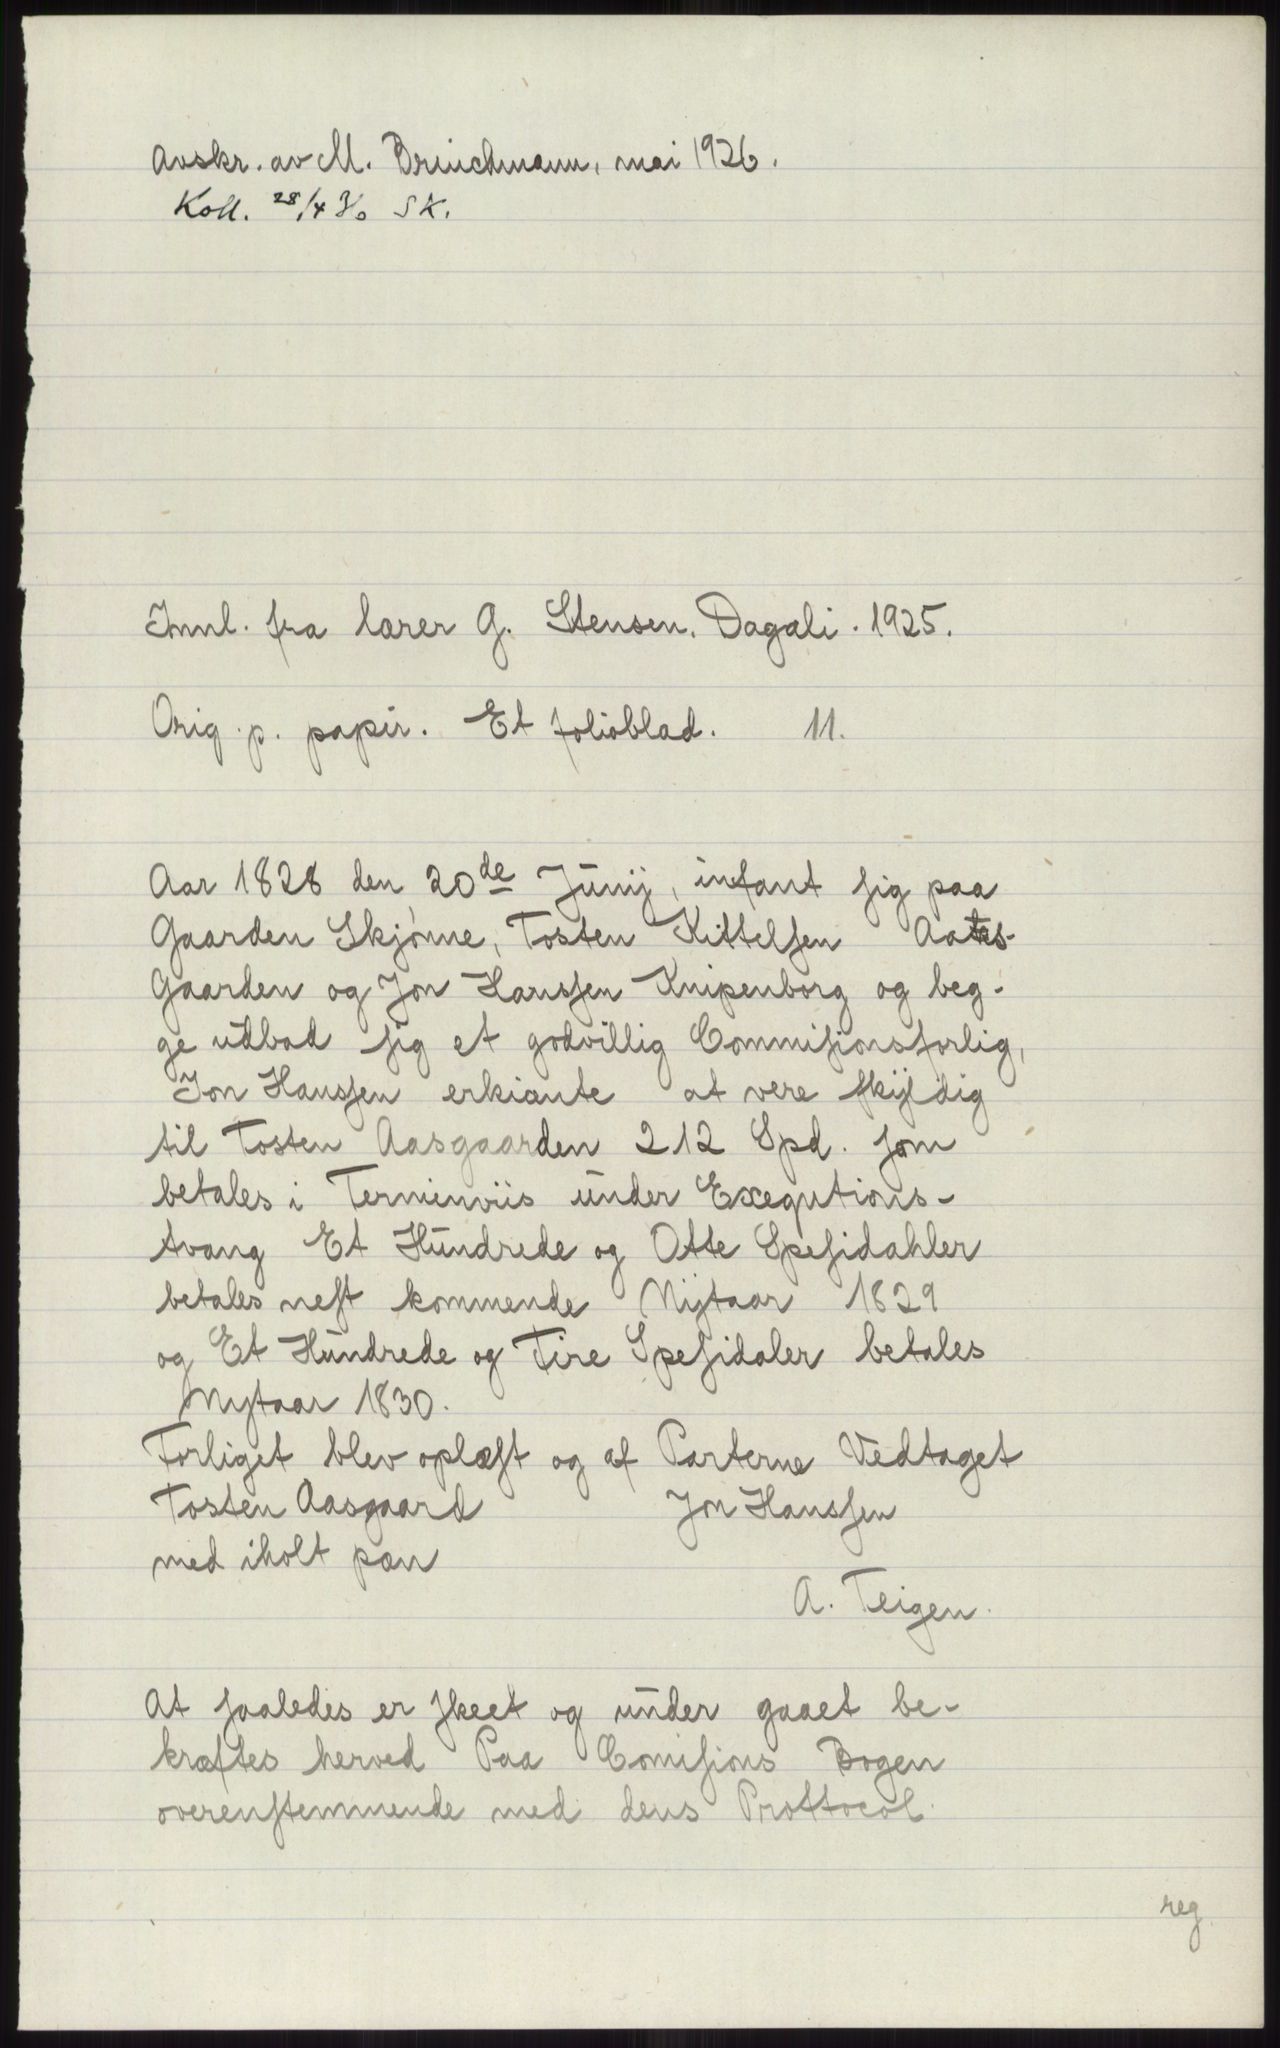 Avskr. av M. Brinchmann, mai 1926.
Koll. 28/4 30 SK.
Innl. fra lærer G. Stensen. Dagali. 1925.
Orig. p. papir. Et folioblad. 11.
Aar 1828 den 20de Junij, infant sig paa
Gaarden Skjønne, Tosten Kittelsen
Gaarden og Jon Hanssen Knipenborg og beg-
ge udbad sig et godvillig Commisionsforlig,
Jon Hanssen erkiante at vere skyldig
til Tosten Aasgaarden 212 Spd. som
betales i Terminviis under Exequtions-
tvang Et Hundrede og Otte Spesidahler
betales nest kommende Nytaar 1829
og Et Hundrede og Fire Spesidaler betales
Nytaar 1830.
Forliget blev oplæst og af Parterne Vedtaget
Tosten Aasgaard Jon Hanssen
med iholt pæn
A. Teigen.
At saaledes er skeet og under gaaet be-
kræftes herved Paa Comisions Bogen
overenstemmende med dens Prottocol.
reg.